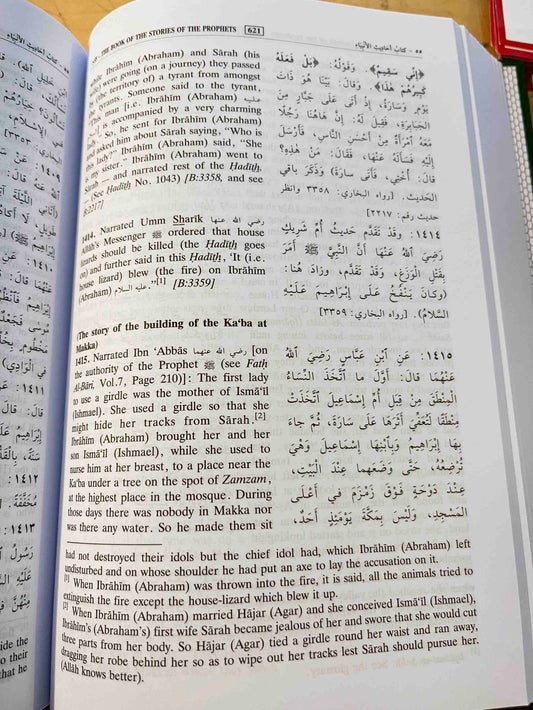 ٥٥ – كتاب أحاديث الأنبياء
621
55 – THE BOOK OF THE STORIES OF THE PROPHETS
while Ibrāhīm (Abraham) and Sārah (his
were going (on a journey) they passed
by (the territory of) a tyrant from amongst
the tyrants. Someone said to the tyrant,
man i.e. Ibrāhīm (Abraham) عليه
is accompanied by a very charming
lady". So, he sent for Ibrāhīm (Abraham)
and asked him about Sārah saying, "Who is
lady?" Ibrāhīm (Abraham) said, "She
is my sister." Ibrāhīm (Abraham) went to
Sārah — and narrated rest of the Hadīth.
— (See Hadīth No. 1043) [B:3358, and see
B:2217]
1414. Narrated Umm Sharīk رضي الله عنها
Allāh's Messenger ﷺ ordered that house
lizards should be killed (the Hadīth goes
on) and further said in this Hadīth, 'It (i.e.
house lizard) blew (the fire) on Ibrāhīm
(Abraham) عليه السلام."[1] [B:3359]
(The story of the building of the Ka'ba at
Makka)
1415. Narrated Ibn 'Abbās رضي الله عنهما [on
the authority of the Prophet ﷺ (see Fath
Al-Bāri, Vol.7, Page 210)]: The first lady
to use a girdle was the mother of Ismā'īl
(Ishmael). She used a girdle so that she
might hide her tracks from Sārah.[2]
Ibrāhīm (Abraham) brought her and her
son Ismā'īl (Ishmael), while she used to
nurse him at her breast, to a place near the
Ka'ba under a tree on the spot of Zamzam,
at the highest place in the mosque. During
those days there was nobody in Makka nor
was there any water. So he made them sit
﴿إِنِّي سَقِيمٌ﴾. وَقَوْلُهُ: ﴿بَلْ فَعَلَهُ
كَبِيرُهُمْ هَذَا﴾. وَقَالَ: بَيْنَا هُوَ ذَاتَ
يَوْمٍ وَسَارَةُ، إِذْ أَتَى عَلَى جَبَّارٍ مِنَ
الجَبَابِرَةِ، فَقِيلَ لَهُ: إِنَّ هَاهُنَا رَجُلًا
مَعَهُ امْرَأَةٌ مِنْ أَحْسَنِ النَّاسِ، فَأَرْسَلَ
إِلَيْهِ فَسَأَلَهُ عَنْهَا، فَقَالَ: مَنْ هَذِهِ؟
قَالَ: أُخْتِي، فَأَتَى سَارَةَ) وَذَكَرَ بَاقِي
الحَدِيث. [رواه البخاري: ٣٣٥٨ وانظر
حديث رقم: ٢٢١٧]
١٤١٤ : وَقَدْ تَقَدَّمَ حَدِيثُ أُمِّ شَرِيكٍ
رَضِيَ اللهُ عَنْهَا أَنَّ النَّبِيَّ ﷺ أَمَرَ
بِقَتْلِ الْوَزَغِ، وَقَدْ تَقَدَّمَ، وَزَادَ هُنَا:
(وَكَانَ يَنْفُخُ عَلَى إِبْرَاهِيمَ عَلَيْهِ
السَّلَامُ). [رواه البخاري: ٣٣٥٩]
١٤١٥ : عَنِ ابْنِ عَبَّاسٍ رَضِيَ اللهُ
عَنْهُمَا قَالَ: أَوَّلَ مَا اتَّخَذَ النِّسَاءُ
الْمِنْطَقَ مِنْ قِبَلِ أُمِّ إِسْمَاعِيلَ اتَّخَذَتْ
مِنْطَقًا لِتُعَفِّيَ أَثَرَهَا عَلَى سَارَةَ، ثُمَّ جاءَ
بِهَا إِبْرَاهِيمُ وَبِابْنِهَا إِسْمَاعِيلَ وَهْيَ
تُرْضِعُهُ، حَتَّى وَضَعَهما عِنْدَ الْبَيْتِ،
عِنْدَ دَوْحَةٍ فَوْقَ زَمْزَمَ في أَعْلَى
المَسْجِدِ، وَلَيْسَ بِمَكَّةَ يَوْمَئِذٍ أَحَدٌ،
had not destroyed their idols but the chief idol had, which Ibrāhīm (Abraham) left
undisturbed and on whose shoulder he had put an axe to lay the accusation on it.
[1] When Ibrāhīm (Abraham) was thrown into the fire, it is said, all the animals tried to
extinguish the fire except the house-lizard which blew it up.
[2] When Ibrāhīm (Abraham) married Hājar (Agar) and she conceived Ismā'īl (Ishmael),
Ibrāhīm's (Abraham's) first wife Sārah became jealous of her and swore that she would cut
three parts from her body. So Hājar (Agar) tied a girdle round her waist and ran away,
dragging her robe behind her so as to wipe out her tracks lest Sārah should pursue her.
(Allāh knows better).